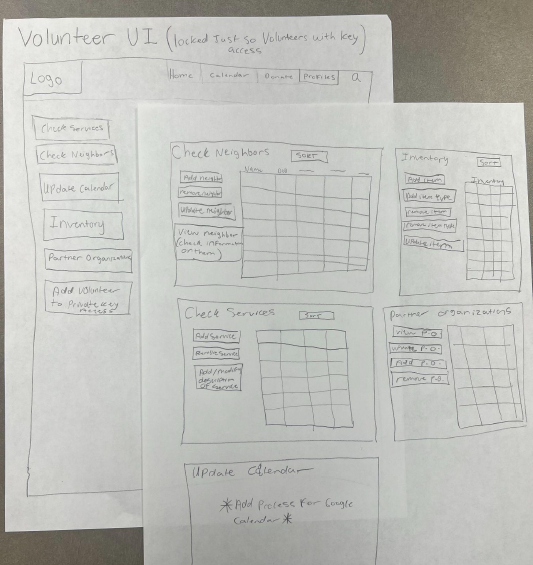 Volunteer UI (locked Just So Volunteers with key
access)
Logo
Home Calendar Donate Profiles
Check Services
Check Neighbors
Update Calendar
Inventory
Partner Organizations
Add Volunteer
to Private key
Access
Check Neighbors SORT
Name
Add neighbor
remove neighbor
Update neighbor
View neighbor
(check information
on them)
Inventory Sort
Inventory
Add item
Add item type
remove item
remove item type
Update item
Check Services SORT
Add Service
Remove Service
Add/modify
description
of service
Partner organizations
View P.O.
update P.O.
Add P.O.
remove P.O.
Update Calendar
*Add Process For Google
Calendar*